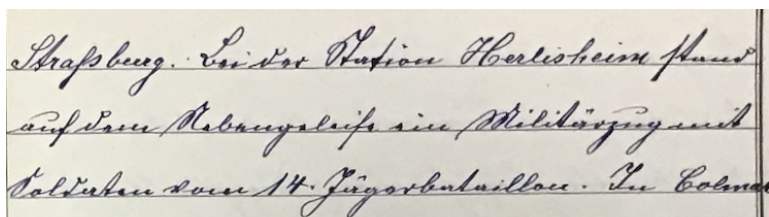 Straßburg. Bei der Station Herlisheim stand
auf dem Nebengeleise ein Militärzug mit
Soldaten vom 14. Jägerbataillon. In Colmar